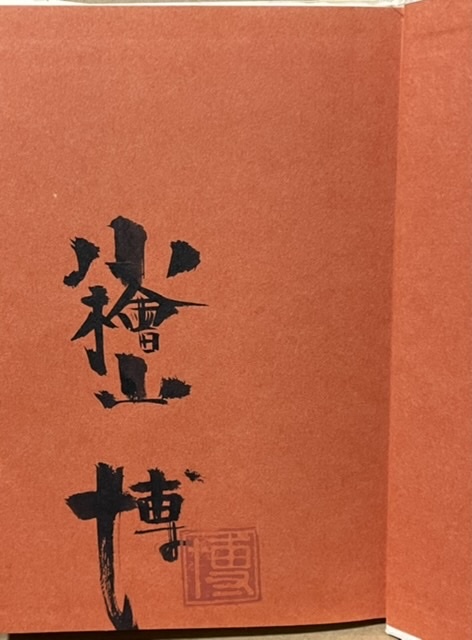 小檜山
博
博